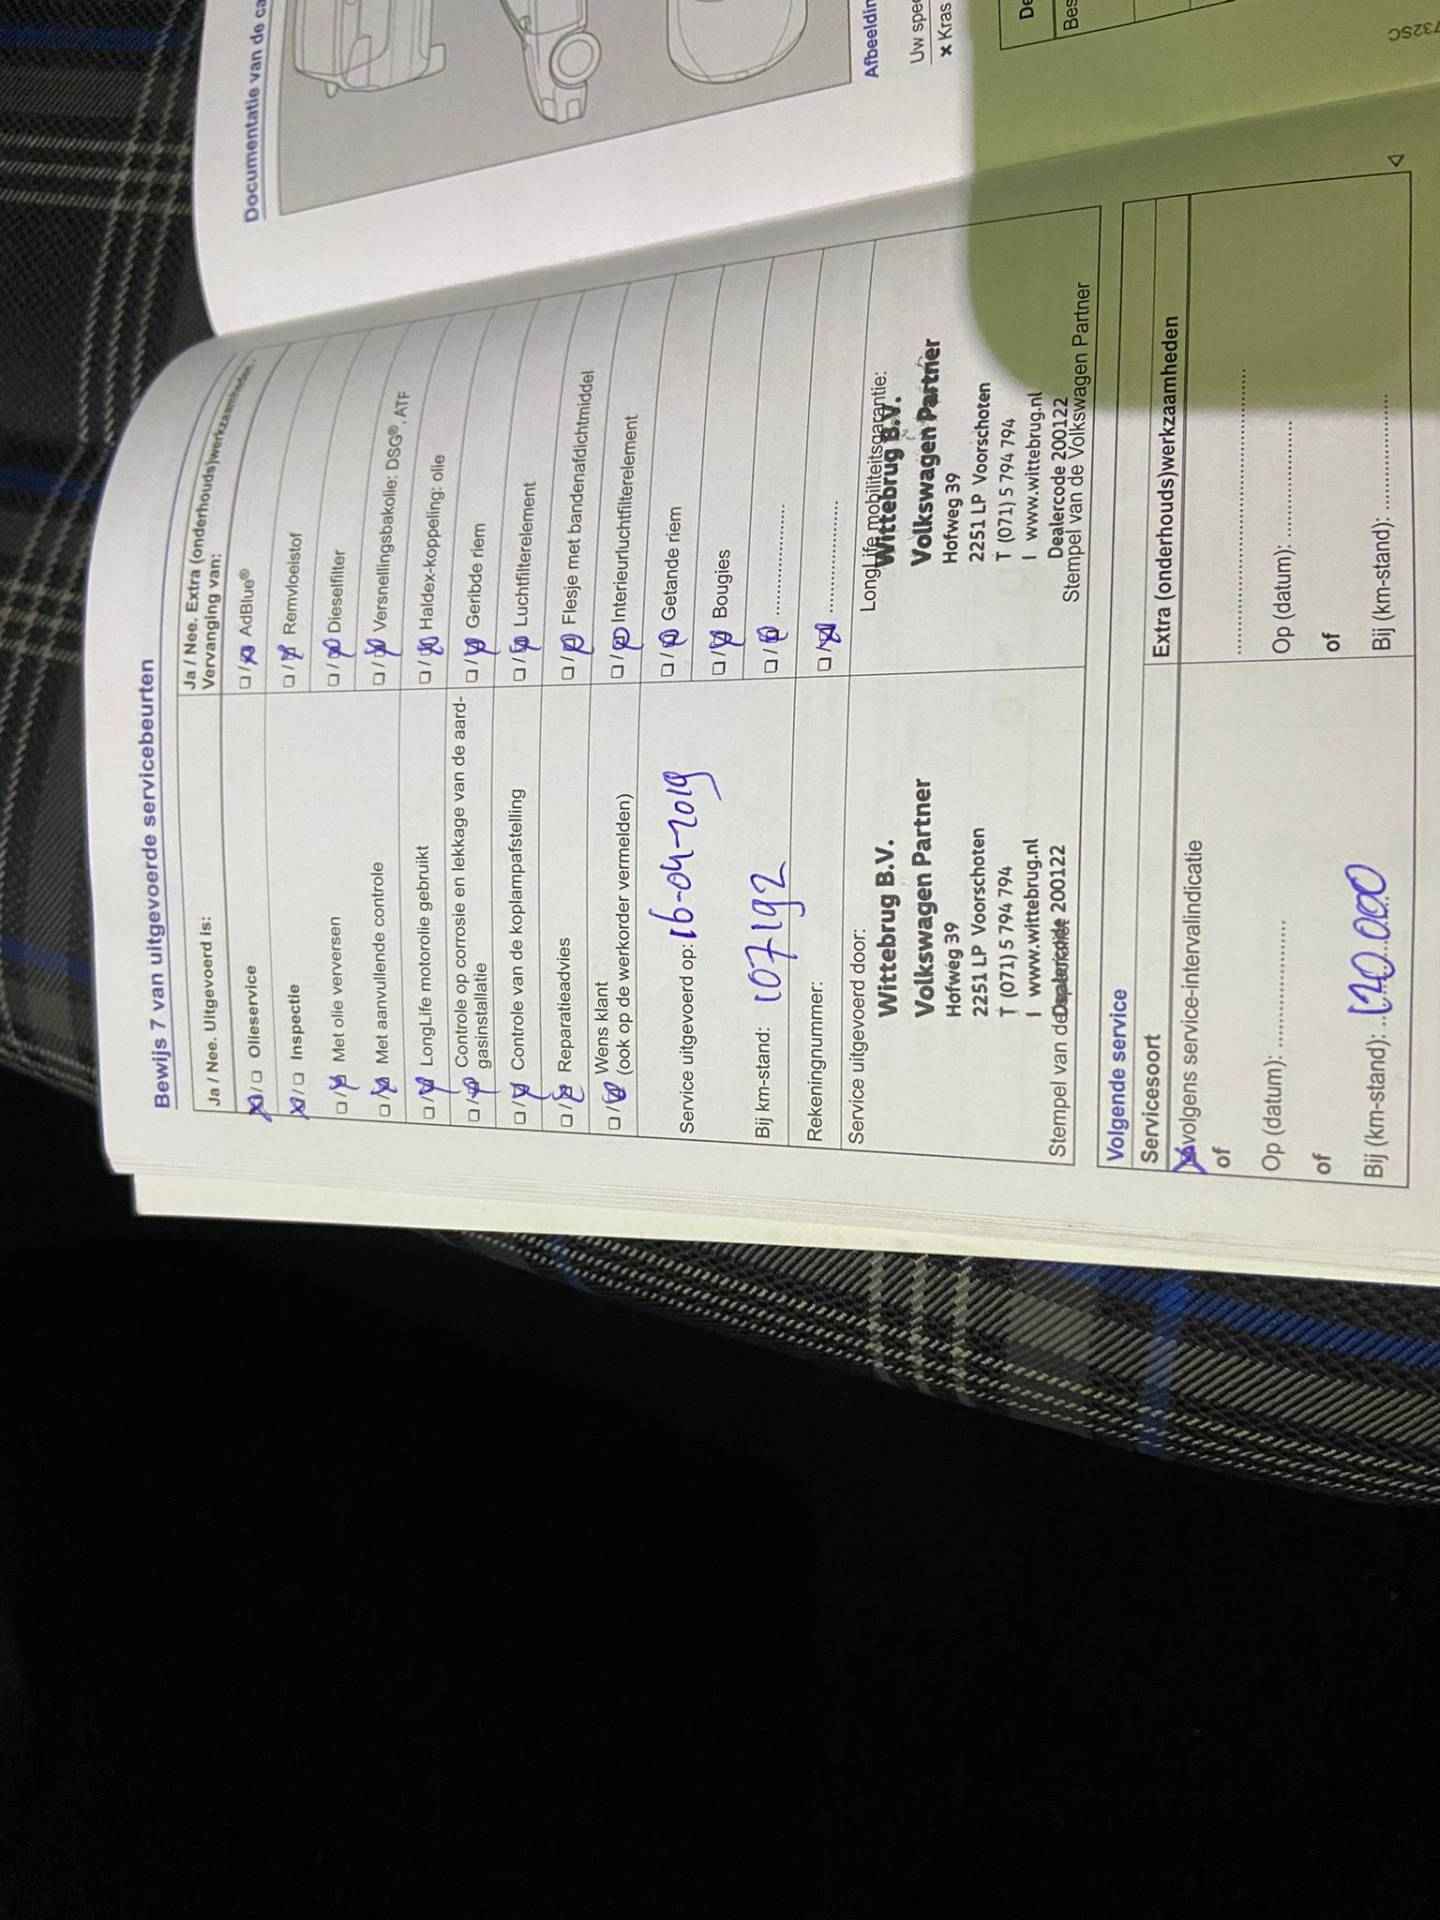 Bewijs 7 van uitgevoerde servicebeurten
Ja / Nee. Uitgevoerd is:
☒/☐ Olieservice
☒/☐ Inspectie
☐/☒ Met olie verversen
☐/☒ Met aanvullende controle
☐/☒ LongLife motorolie gebruikt
☐/☒ Controle op corrosie en lekkage van de aard-
gasinstallatie
☐/☒ Controle van de koplampafstelling
☐/☒ Reparatieadvies
☐/☒ Wens klant
(ook op de werkorder vermelden)
Service uitgevoerd op: 16-04-2019
Bij km-stand: 107192
Rekeningnummer:
Service uitgevoerd door:
Wittebrug B.V.
Volkswagen Partner
Hofweg 39
2251 LP Voorschoten
T (071) 5 794 794
I www.wittebrug.nl
Dealercode 200122
Stempel van de
Ja / Nee. Extra (onderhouds)werkzaamheden.
Vervanging van:
☐/☒ AdBlue®
☐/☒ Remvloeistof
☐/☒ Dieselfilter
☐/☒ Versnellingsbakolie: DSG®, ATF
☐/☒ Haldex-koppeling: olie
☐/☒ Geribde riem
☐/☒ Luchtfilterelement
☐/☒ Flesje met bandenafdichtmiddel
☐/☒ Interieurluchtfilterelement
☐/☒ Getande riem
☐/☒ Bougies
☐/☒ ....................
☐/☒ ....................
LongLife mobiliteitsgarantie:
Wittebrug B.V.
Volkswagen Partner
Hofweg 39
2251 LP Voorschoten
T (071) 5 794 794
I www.wittebrug.nl
Dealercode 200122
Stempel van de Volkswagen Partner
Volgende service
Servicesoort
☒ volgens service-intervalindicatie
of
Op (datum): ....................
of
Bij (km-stand): 120.000
Extra (onderhouds)werkzaamheden
........................................
Op (datum): ....................
of
Bij (km-stand): ....................
Documentatie van de ca
Afbeeldin
Uw spec
× Kras
De
Bes
732SC